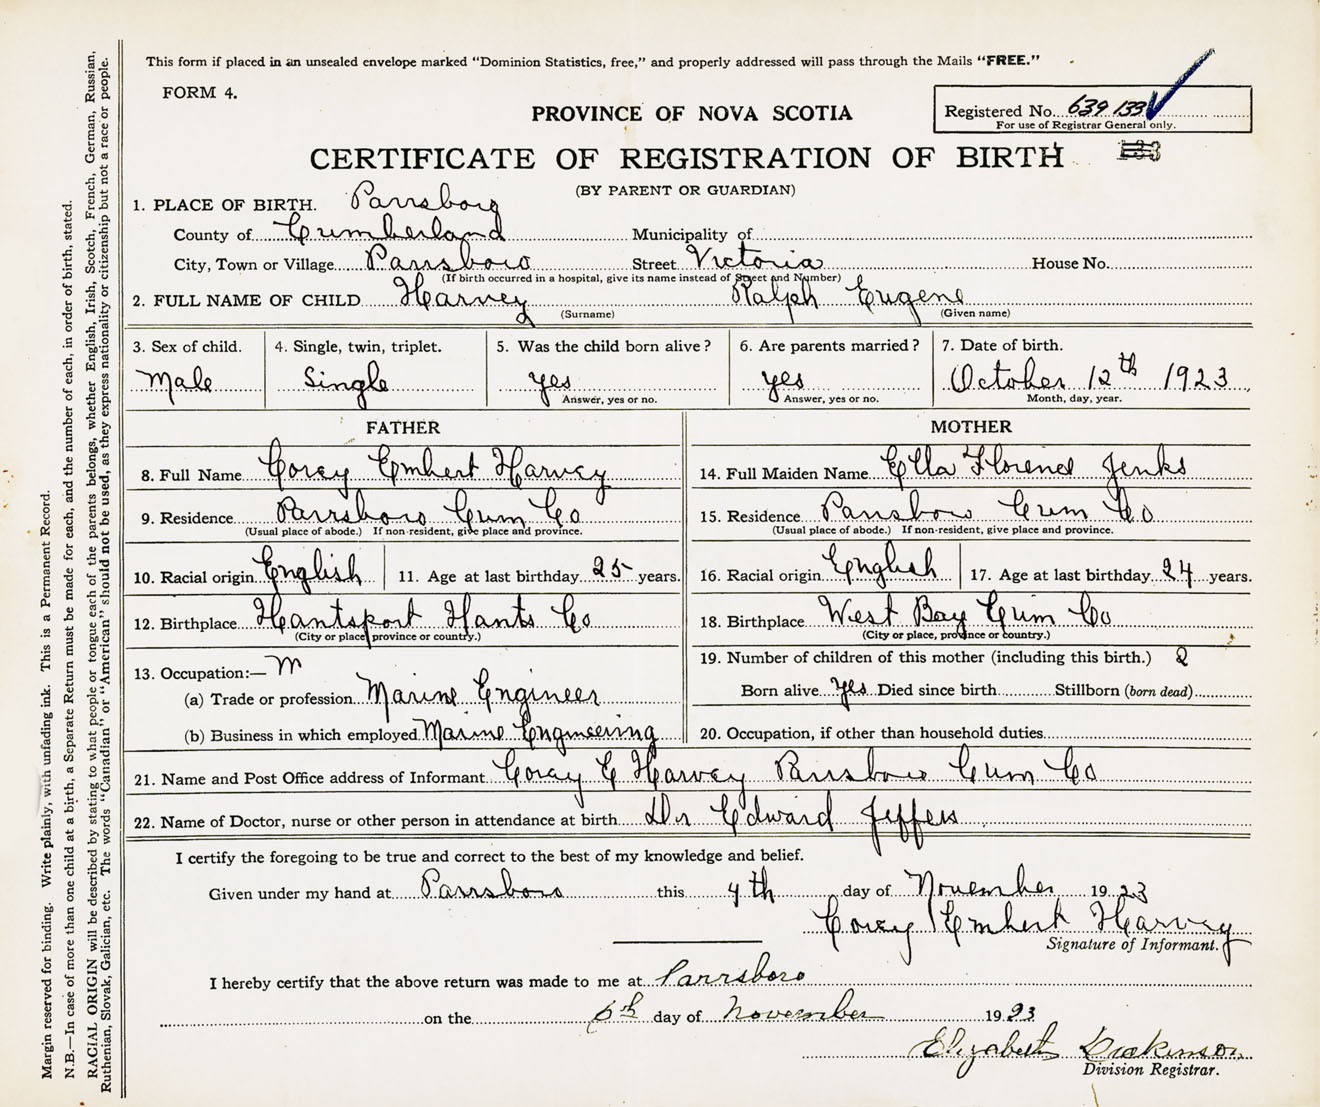 This form if placed in an unsealed envelope marked "Dominion Statistics, free," and properly addressed will pass through the Mails "FREE."
FORM 4.
PROVINCE OF NOVA SCOTIA
Registered No. 639 133
For use of Registrar General only.
CERTIFICATE OF REGISTRATION OF BIRTH
(BY PARENT OR GUARDIAN)
1. PLACE OF BIRTH. Parrsboro
County of Cumberland Municipality of
City, Town or Village Parrsboro Street Victoria House No.
(If birth occurred in a hospital, give its name instead of Street and Number)
2. FULL NAME OF CHILD Harvey Ralph Eugene
(Surname) (Given name)
3. Sex of child. 4. Single, twin, triplet. 5. Was the child born alive? 6. Are parents married? 7. Date of birth.
Male Single yes yes October 12th 1923
Answer, yes or no. Answer, yes or no. Month, day, year.
FATHER MOTHER
8. Full Name Corey Embert Harvey 14. Full Maiden Name Ella Florence Jenks
9. Residence Parrsboro Cum Co 15. Residence Parrsboro Cum Co
(Usual place of abode.) If non-resident, give place and province. (Usual place of abode.) If non-resident, give place and province.
10. Racial origin English 11. Age at last birthday 25 years. 16. Racial origin English 17. Age at last birthday 24 years.
12. Birthplace Hantsport Hants Co 18. Birthplace West Bay Cum Co
(City or place, province or country.) (City or place, province or country.)
13. Occupation:— M 19. Number of children of this mother (including this birth.) 2
(a) Trade or profession Marine Engineer Born alive yes Died since birth Stillborn (born dead)
(b) Business in which employed Marine Engineering 20. Occupation, if other than household duties
21. Name and Post Office address of Informant Corey E Harvey Parrsboro Cum Co
22. Name of Doctor, nurse or other person in attendance at birth Dr Edward Jeffers
I certify the foregoing to be true and correct to the best of my knowledge and belief.
Given under my hand at Parrsboro this 4th day of November 1923
Corey Embert Harvey
Signature of Informant.
I hereby certify that the above return was made to me at Parrsboro
on the 6th day of November 1923
Elizabeth Dickinson
Division Registrar.
Margin reserved for binding. Write plainly, with unfading ink. This is a Permanent Record.
N.B.—In case of more than one child at a birth, a Separate Return must be made for each, and the number of each, in order of birth, stated.
RACIAL ORIGIN will be described by stating to what people or tongue each of the parents belongs, whether English, Irish, Scotch, French, German, Russian,
Ruthenian, Slovak, Galician, etc. The words "Canadian" or "American" should not be used, as they express nationality or citizenship but not a race or people.